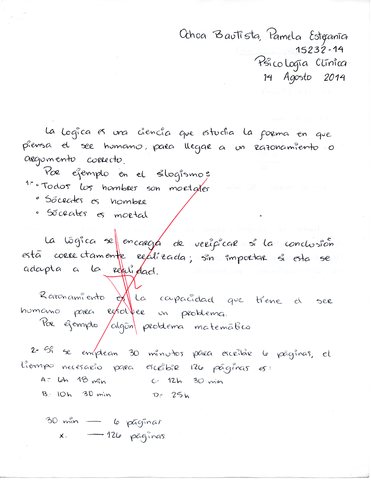 Ochoa Bautista, Pamela Estefania
15232-14
Psicología Clínica
14 Agosto 2014
La Logica es una ciencia que estudia la forma en que
piensa el ser humano, para llegar a un razonamiento o
argumento correcto.
Por ejemplo en el silogismo:
1.- • Todos los hombres son mortales
• Sócrates es hombre
• Sócrates es mortal
La lógica se encarga de verificar si la conclusión
está correctamente realizada, sin importar si esta se
adapta a la realidad.
Razonamiento es la capacidad que tiene el ser
humano para resolver un problema.
Por ejemplo algún problema matemático
2.- Si se emplean 30 minutos para escribir 6 páginas, el
tiempo necesario para escribir 126 páginas es:
A= 6h 18 min C= 12h 30 min
B= 10h 30 min D= 25h
30 min — 6 páginas
x. — 126 páginas